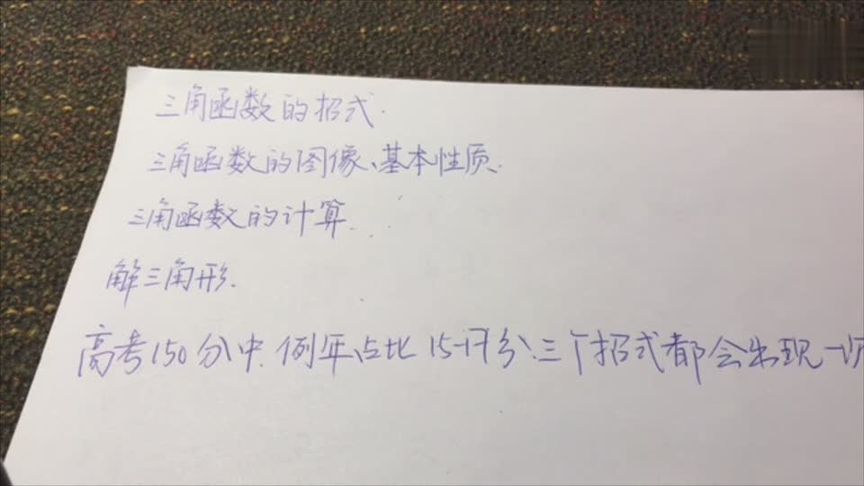 三角函数的招式.
三角函数的图像、基本性质.
三角函数的计算.
解三角形.
高考150分中.例年占比15-17分、三个招式都会出现一次